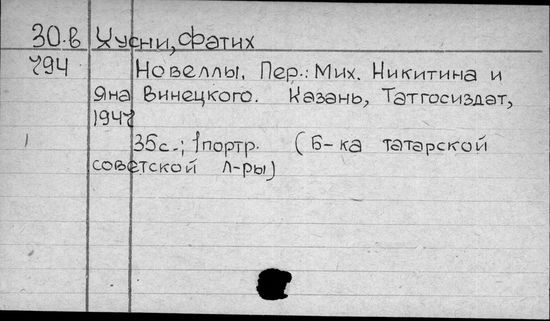 30.в Хусни, Фатих
794 Новеллы. Пер.: Мих. Никитина и
Яна Винецкого. Казань, Татгосиздат,
1947
35с.; 1портр. (Б-ка татарской
советской л-ры)